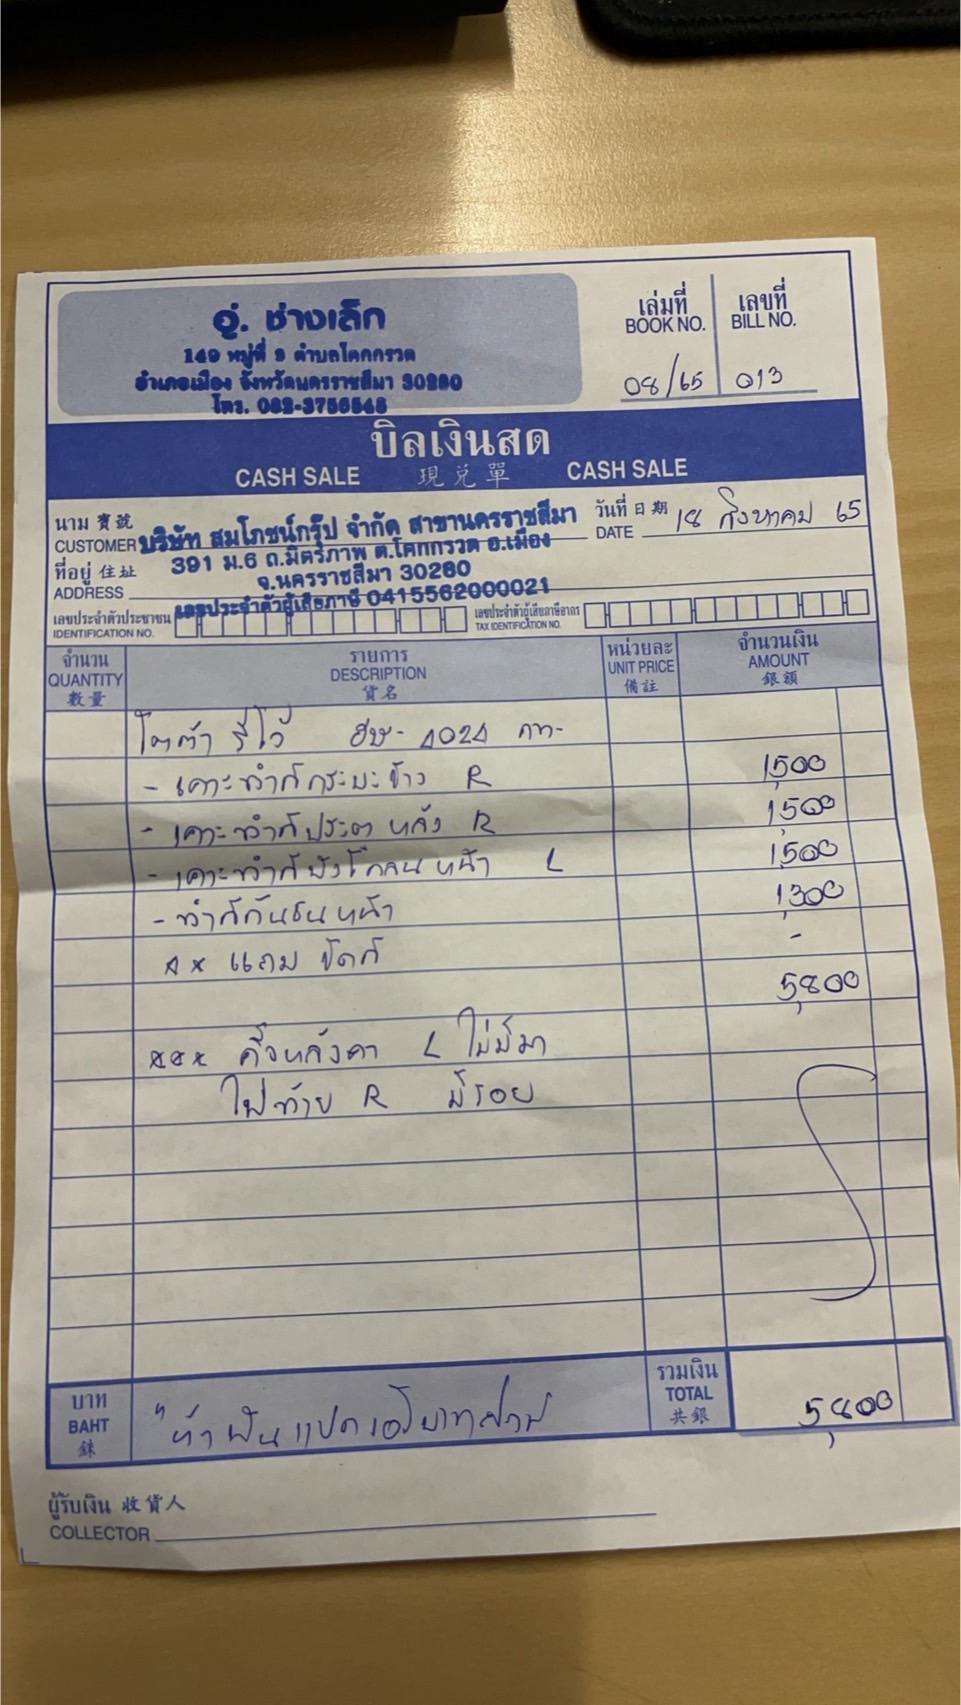 อู่. ช่างเล็ก
149 หมู่ที่ 9 ตำบลโคกกรวด
อำเภอเมือง จังหวัดนครราชสีมา 30280
โทร. 082-3756548
เล่มที่ เลขที่
BOOK NO. BILL NO.
08/65 013
บิลเงินสด
CASH SALE 現兌單 CASH SALE
นาม 寶號 บริษัท สมโภชน์กรุ๊ป จำกัด สาขานครราชสีมา วันที่ 日期 18 สิงหาคม 65
CUSTOMER DATE
ที่อยู่ 住址 391 ม.6 ถ.มิตรภาพ ต.โคกกรวด อ.เมือง
ADDRESS จ.นครราชสีมา 30280
เลขประจำตัวผู้เสียภาษี 0415562000021
เลขประจำตัวประชาชน เลขประจำตัวผู้เสียภาษีอากร
IDENTIFICATION NO. TAX IDENTIFICATION NO.
จำนวน รายการ หน่วยละ จำนวนเงิน
QUANTITY DESCRIPTION UNIT PRICE AMOUNT
數量 貨名 備註 銀額
รีโว้ 4024 กท-
- เคาะทำสีกระบะข้าง R 1,500
- เคาะทำสีประตูหลัง R 1,500
- เคาะทำสีบังโคลนหน้า L 1,500
- ทำสีกันชนหน้า 1,300
** แถม ขัดสี -
5,800
*** คิ้วหลังคา L ไม่มีมา
ไฟท้าย R มีรอย
บาท รวมเงิน
BAHT "ห้าพันแปดร้อยบาทถ้วน TOTAL 5,800
銖 共銀
ผู้รับเงิน 收貨人
COLLECTOR